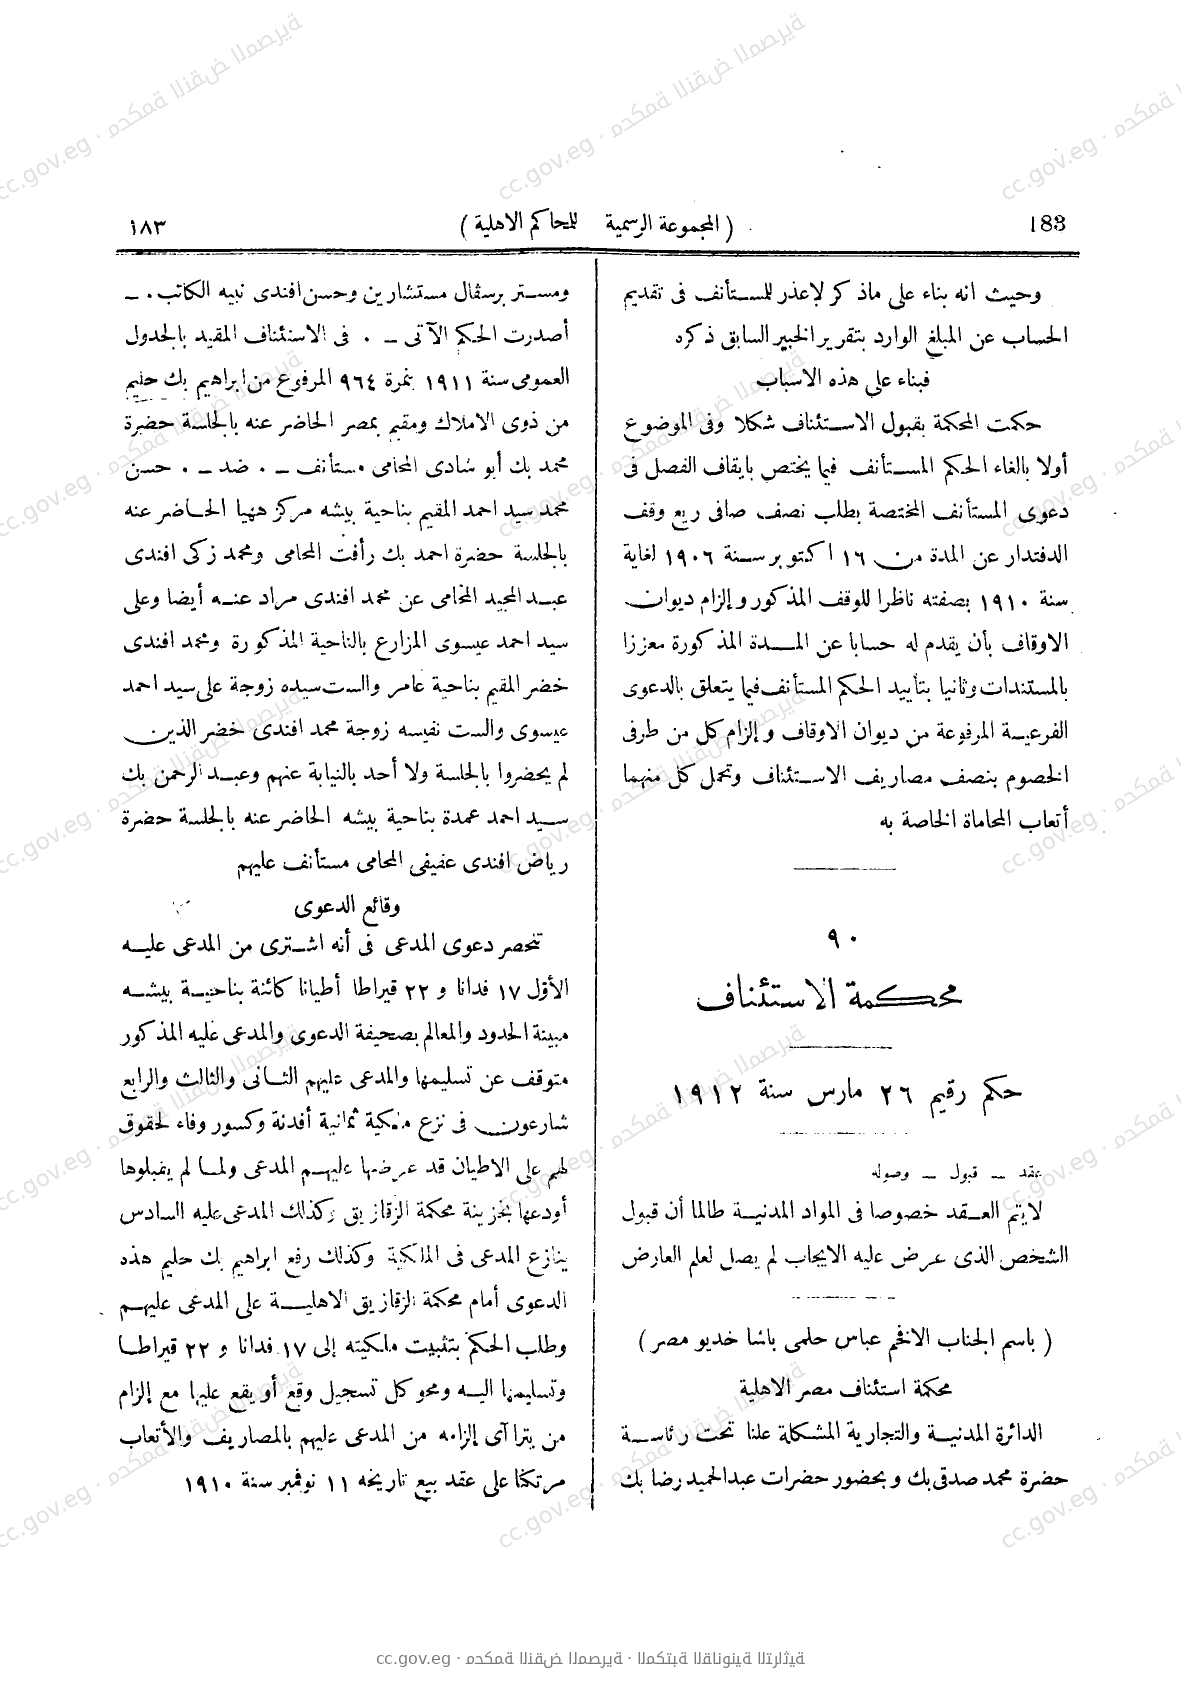 183 ( المجموعة الرسمية للمحاكم الاهلية ) ١٨٣
وحيث انه بناء على ماذكر لاعذر للمستأنف فى تقديم
الحساب عن المبلغ الوارد بتقرير الخبير السابق ذكره
فبناء على هذه الاسباب
حكمت المحكمة بقبول الاستئناف شكلا وفى الموضوع
أولا بالغاء الحكم المستأنف فيما يختص بايقاف الفصل فى
دعوى المستأنف المختصة بطلب نصف صافى ريع وقف
الدفتدار عن المدة من ١٦ اكتوبر سنة ١٩٠٦ لغاية
سنة ١٩١٠ بصفته ناظرا للوقف المذكور والزام ديوان
الاوقاف بأن يقدم له حسابا عن المدة المذكورة معززا
بالمستندات وثانيا بتأييد الحكم المستأنف فيما يتعلق بالدعوى
الفرعية المرفوعة من ديوان الاوقاف والزام كل من طرفى
الخصوم بنصف مصاريف الاستئناف وتحمل كل منهما
أتعاب المحاماة الخاصة به
٩٠
محكمة الاستئناف
حكم رقيم ٢٦ مارس سنة ١٩١٢
عقد – قبول – وصوله
لايتم العقد خصوصا فى المواد المدنية طالما أن قبول
الشخص الذى عرض عليه الايجاب لم يصل لعلم العارض
( باسم الجناب الافخم عباس حلمى باشا خديو مصر )
محكمة استئناف مصر الاهلية
الدائرة المدنية والتجارية المشكلة علنا تحت رئاسة
حضرة محمد صدقى بك وبحضور حضرات عبدالحميد رضا بك
ومستر برسفال مستشارين وحسن افندى نبيه الكاتب . –
أصدرت الحكم الآتى – . فى الاستئناف المقيد بالجدول
العمومى سنة ١٩١١ بنمرة ٩٦٤ المرفوع من ابراهيم بك حليم
من ذوى الاملاك ومقيم بمصر الحاضر عنه بالجلسة حضرة
محمد بك أبو شادى المحامى مستأنف – . ضد – . حسن
محمد سيد احمد المقيم بناحية بيشه مركز ههيا الحاضر عنه
بالجلسة حضرة احمد بك رأفت المحامى ومحمد زكى افندى
عبد المجيد المحامى عن محمد افندى مراد عنه أيضا وعلى
سيد احمد عيسوى المزارع بالناحية المذكورة ومحمد افندى
خضر المقيم بناحية عامر والست سيده زوجة على سيد احمد
عيسوى والست نفيسه زوجة محمد افندى خضر الذين
لم يحضروا بالجلسة ولا أحد بالنيابة عنهم وعبد الرحمن بك
سيد احمد عمدة بناحية بيشه الحاضر عنه بالجلسة حضرة
رياض افندى عفيفى المحامى مستأنف عليهم
وقائع الدعوى
تنحصر دعوى المدعى فى أنه اشترى من المدعى عليه
الأول ١٧ فدانا و ٢٢ قيراطا أطيانا كائنة بناحية بيشه
مبينة الحدود والمعالم بصحيفة الدعوى والمدعى عليه المذكور
متوقف عن تسليمها والمدعى عليهم الثانى والثالث والرابع
شارعون فى نزع ملكية ثمانية أفدنة وكسور وفاء لحقوق
لهم على الاطيان قد عرضها عليهم المدعى ولما لم يقبلوها
أودعها بخزينة محكمة الزقازيق وكذلك المدعى عليه السادس
ينازع المدعى فى الملكية وكذلك رفع ابراهيم بك حليم هذه
الدعوى أمام محكمة الزقازيق الاهلية على المدعى عليهم
وطلب الحكم بتثبيت ملكيته إلى ١٧ فدانا و ٢٢ قيراطا
وتسليمها اليه ومحو كل تسجيل وقع أو يقع عليها مع إلزام
من يتراآى إلزامه من المدعى عليهم بالمصاريف والأتعاب
مرتكنا على عقد بيع تاريخه ١١ نوفمبر سنة ١٩١٠
cc.gov.eg · محكمة النقض المصرية · المكتبة القانونية التراثية